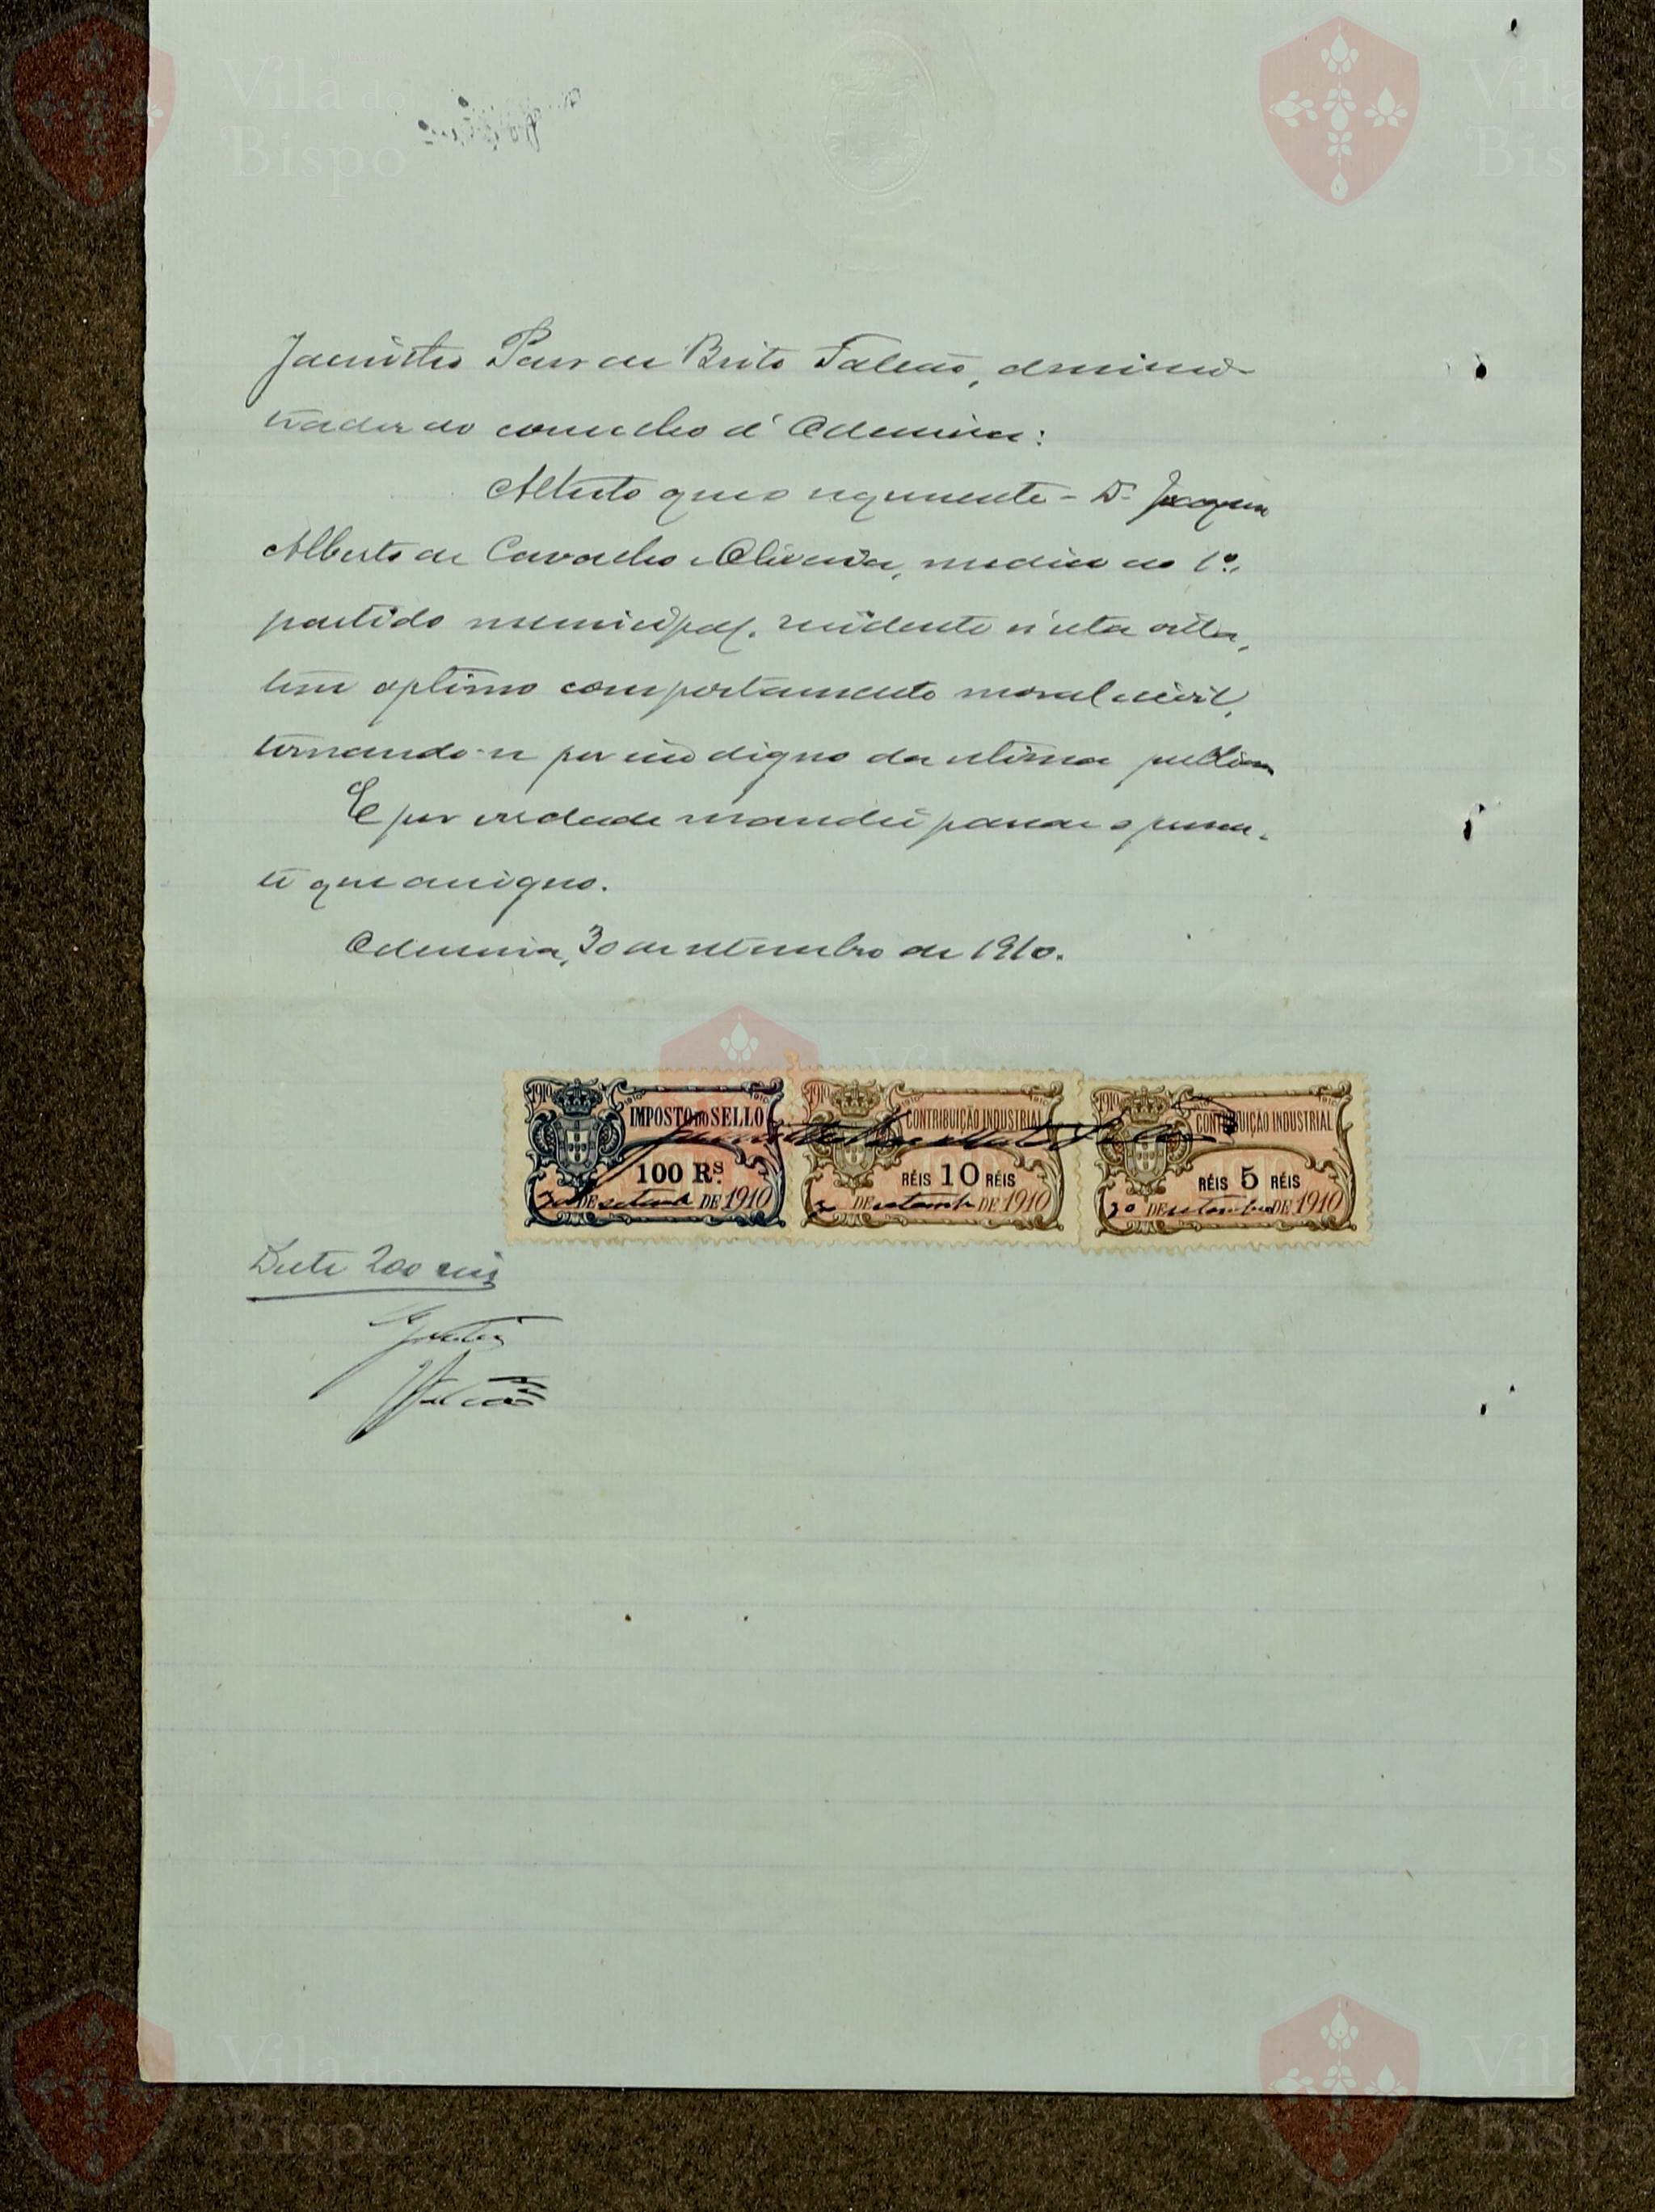 Jacintho Paes de Brito Falcão, adminis-
trador do concelho d'Odemira:
Attesto que o requerente - Dr. Joaquim
Alberto de Carvalho e Oliveira, medico do 1º
partido municipal, residente n'esta villa,
tem optimo comportamento moral e civil,
tornando-se por isso digno da estima publica
E por verdade mandei passar o presen-
te que assigno.
Odemira, 30 de setembro de 1910.
1910 IMPOSTO DO SELLO 1910
1910 CONTRIBUIÇÃO INDUSTRIAL
1910 CONTRIBUIÇÃO INDUSTRIAL
100 RS.
RÉIS 10 RÉIS
RÉIS 5 RÉIS
30 DE setembro DE 1910
30 DE setembro DE 1910
30 DE setembro DE 1910
Deste 200 reis
Gratis
Falcão
Vila do Bispo
Vila do Bispo
Vila do Bispo
Vila do Bispo